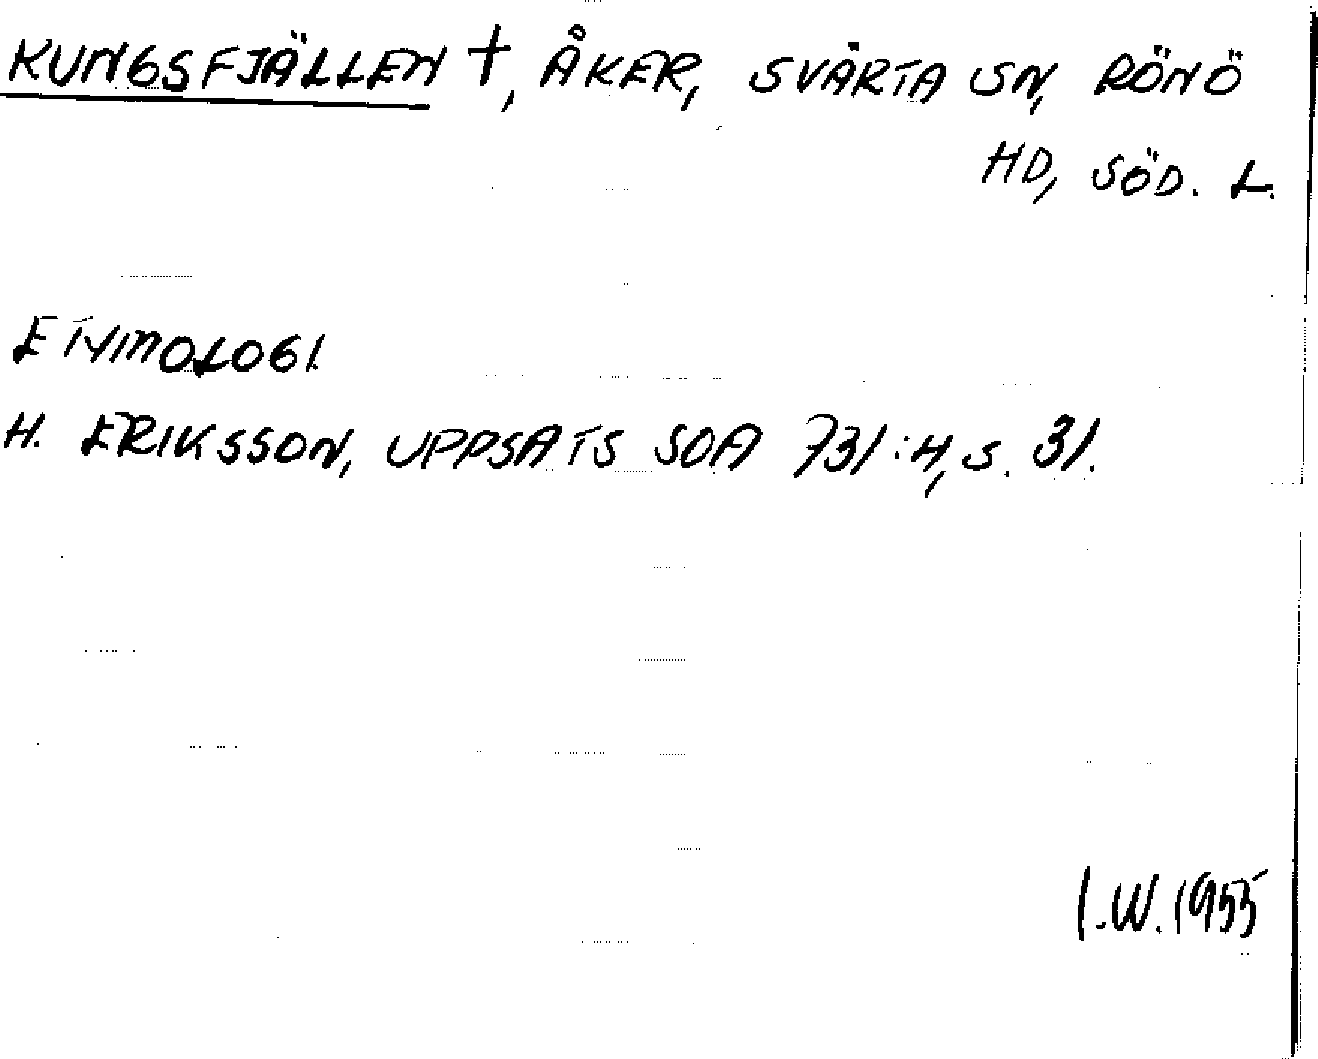 KUNGSFJÄLLEN †, ÅKER, SVÄRTA SN, RÖNÖ
HD, SÖD. L.
ETYMOLOGI.
H. ERIKSSON, UPPSATS SOA 731:4, S. 31.
I.W. 1955